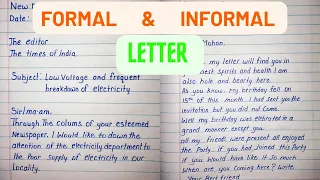 FORMAL & INFORMAL
LETTER
New
Date:
The editor
The times of India
Subject: Low Voltage and frequent
breakdown of electricity
Sir/ma'am,
Through the colums of your esteemed
Newspaper. I would like to down the
attention of the electricity department to
the poor supply of electricity in our
locality.
Mohan,
my letter will find you in
best spirits and health I am
also hale and hearty here.
As you know, my birthday fell on
15th of this month. I had sent you the
invitation but you did not come.
Well my birthday was celebrated in a
grand manner except you.
all my friend were present all enjoyed
the Party. If you had joined this Party
you would have like it so much
when are you coming here? Write
Your Best Friend